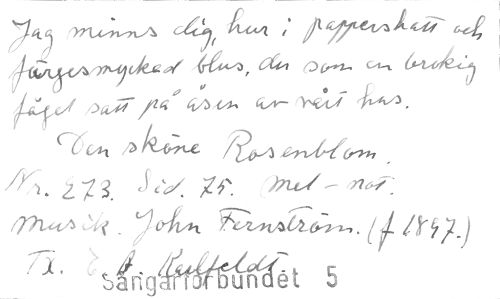 Jag minns dig, hur i pappershatt och
färgesmyckad blus, du som en brokig
fågel satt på åsen av vårt hus.
Den sköne Rosenblom.
Nr. 273. Sid. 75. Mel-not.
Musik. John Fernström. (f 1897.)
Tx. E A. Karlfeldt.
Sångarförbundet 5